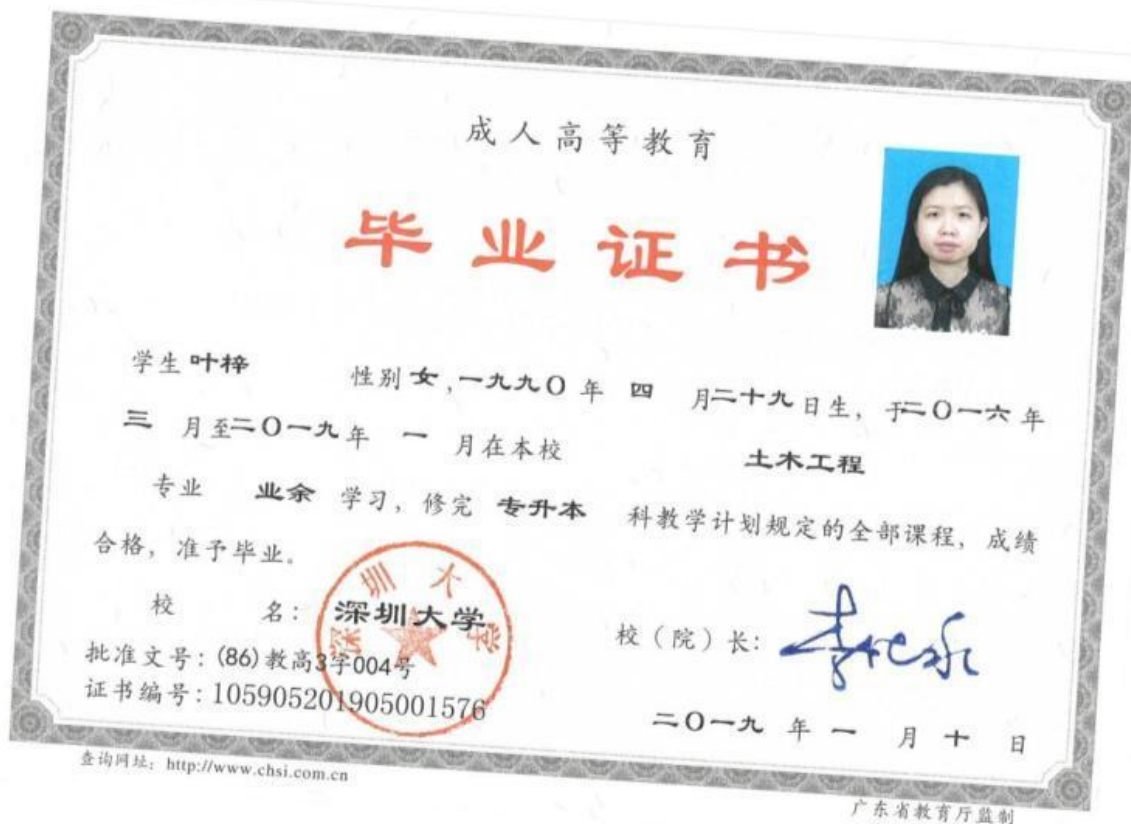 成人高等教育
毕业证书
学生 叶梓 性别 女,一九九〇 年 四 月 二十九 日生, 于 二〇一六 年
三 月至 二〇一九 年 一 月在本校 土木工程
专业 业余 学习, 修完 专升本 科教学计划规定的全部课程, 成绩
合格, 准予毕业。
校 名: 深圳大学
深圳大学
校(院)长:
批准文号: (86)教高3字004号
证书编号: 105905201905001576
二〇一九 年 一 月 十 日
查询网址: http://www.chsi.com.cn
广东省教育厅监制